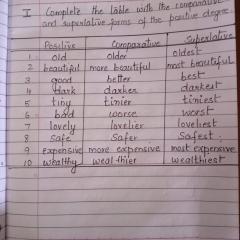 I Complete the table with the comparative
and superlative forms of the positive degree.
Positive Comparative Superlative
1 old older oldest
2 beautiful more beautiful most beautiful
3 good better best
4 dark darker darkest
5 tiny tinier tiniest
6 bad worse worst
7 lovely lovelier loveliest
8 safe safer safest
9 expensive more expensive most expensive
10 wealthy wealthier wealthiest